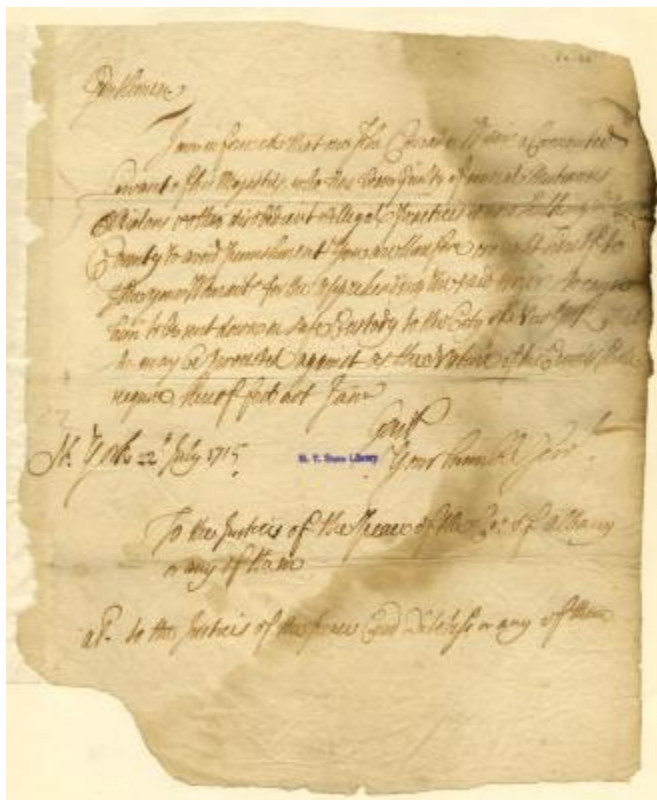 Gentlemen
I am informed that one Jno Conradus Wiser a Covenanted
Servant of his Majesties who has been guilty of several Mutinous
Riotous & other disobedient & illegal Practices is now
County to avoid Punishment You are therefore
your Warrant for the apprehending the said Wiser &
him to be sent down in safe Custody to the City of New York that
he may be proceeded against as the Nature of his Crimes shall
require hereof fail not I am
Gent
N. York 22d July 1715
N. Y. State Library
Your humble Servt
To the Justices of the Peace of the Co: of Albany
or any of them
to the Justices of the peace Dutchess or any of them